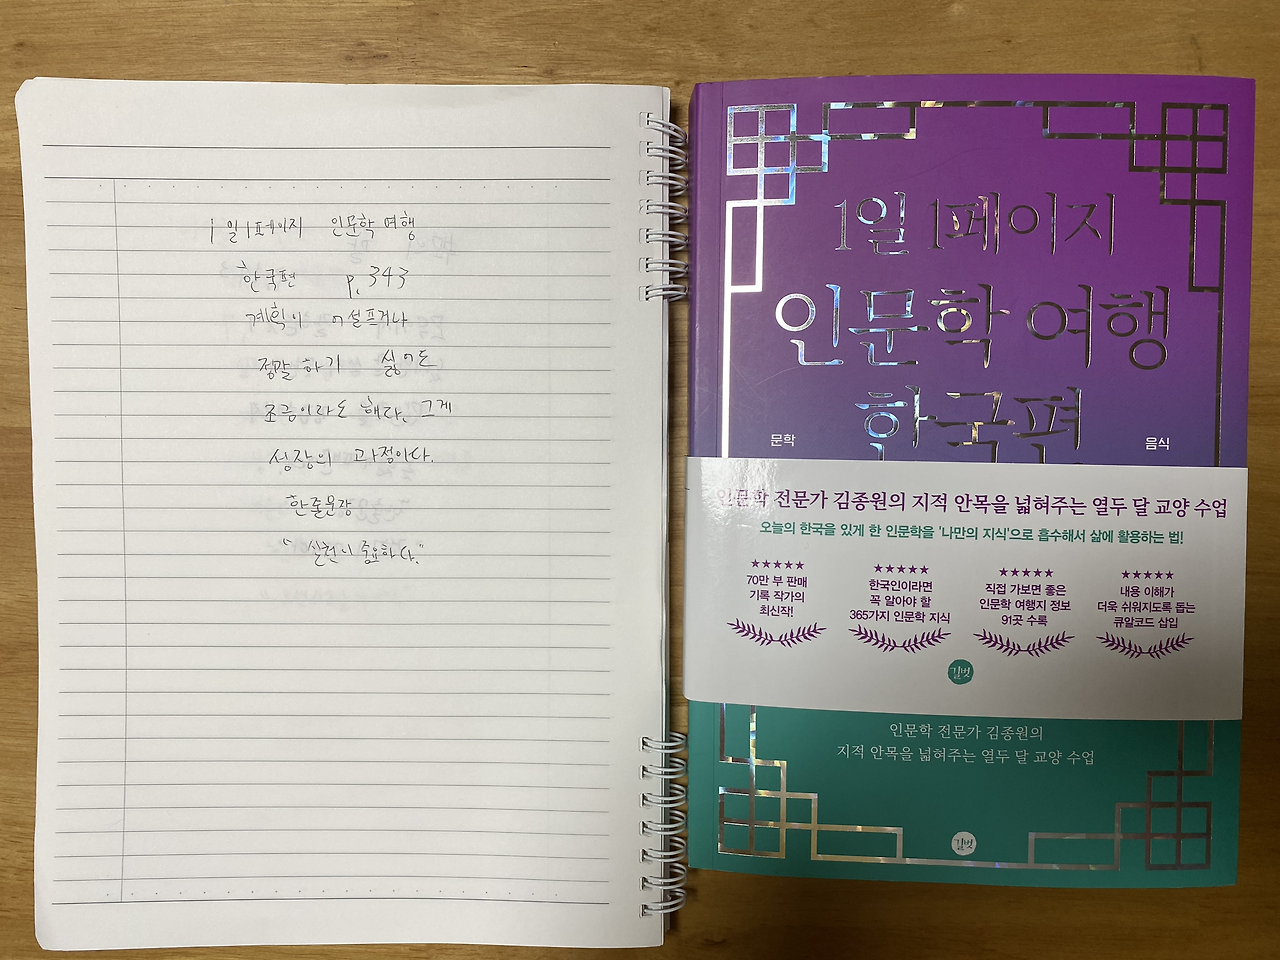 1일 1페이지 인문학 여행
한국편 p.343
계획이 어설프거나
정말 하기 싫어도
조금이라도 해라. 그게
성장의 과정이다.
한줄문장
"실천이 중요하다."
1일 1페이지
인문학 여행
한국편
문학
음식
인문학 전문가 김종원의 지적 안목을 넓혀주는 열두 달 교양 수업
오늘의 한국을 있게 한 인문학을 '나만의 지식'으로 흡수해서 삶에 활용하는 법!
★★★★★
70만 부 판매
기록 작가의
최신작!
★★★★★
한국인이라면
꼭 알아야 할
365가지 인문학 지식
★★★★★
직접 가보면 좋은
인문학 여행지 정보
91곳 수록
★★★★★
내용 이해가
더욱 쉬워지도록 돕는
큐알코드 삽입
길벗
인문학 전문가 김종원의
지적 안목을 넓혀주는 열두 달 교양 수업
길벗